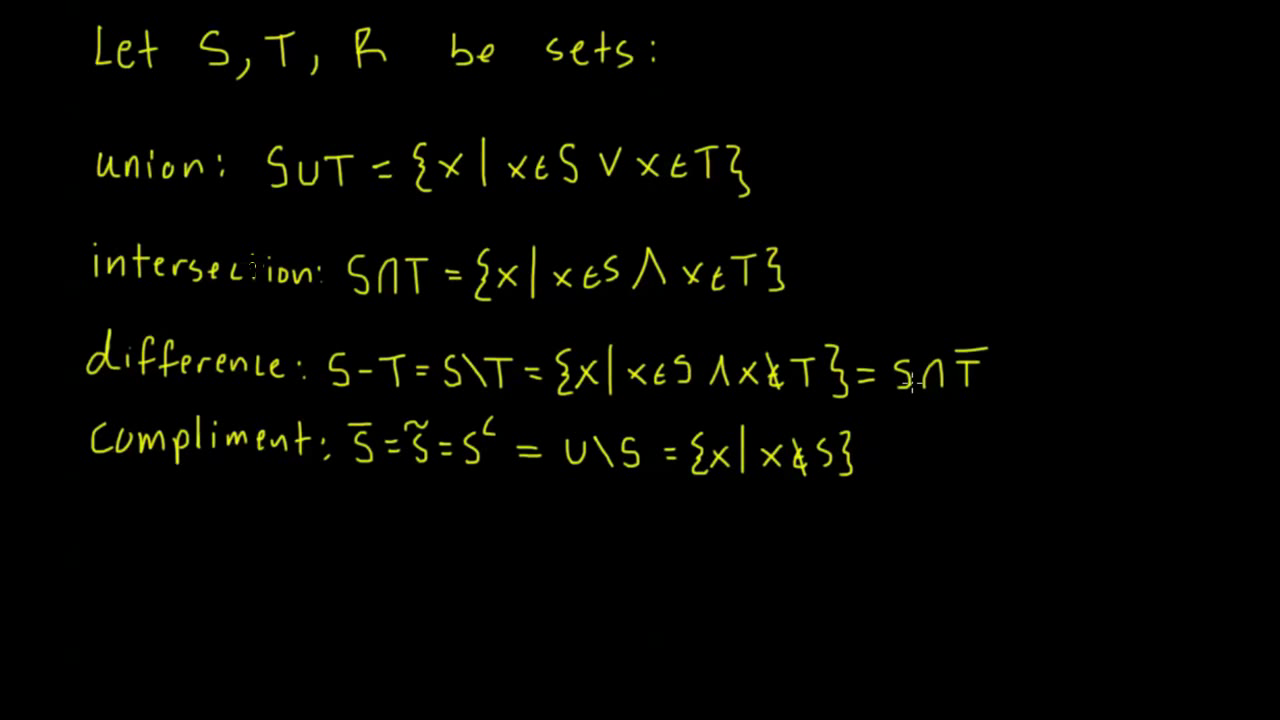 Let S, T, R be sets:
union: S∪T = {x | x∈S ∨ x∈T}
intersection: S∩T = {x | x∈S ∧ x∈T}
difference: S-T = S\T = {x | x∈S ∧ x∉T} = S∩T̅
compliment: S̅ = S̃ = Sᶜ = U\S = {x | x∉S}